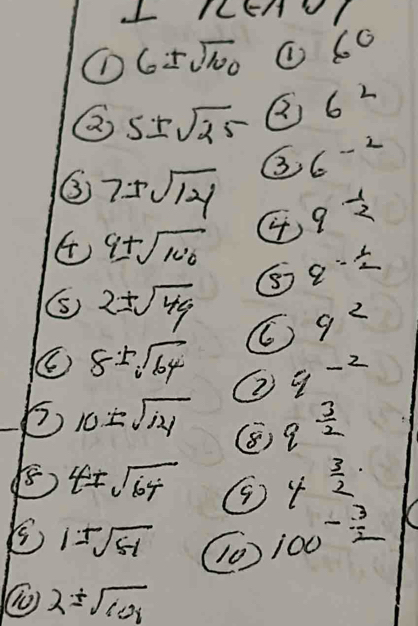 ① 6 ± √100
② 5 ± √25
③ 7 ± √121
④ 9 ± √100
⑤ 2 ± √49
⑥ 8 ± √64
⑦ 10 ± √121
⑧ 4 ± √64
⑨ 1 ± √81
⑩ 2 ± √
① 6⁰
② 6²
③ 6⁻²
④ 9^(1/2)
⑤ 9^(-1/2)
⑥ 9²
⑦ 9⁻²
⑧ 9^(3/2)
⑨ 4^(3/2)
⑩ 100^(-3/2)